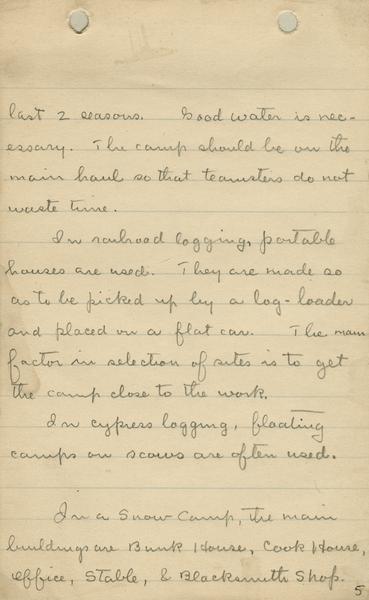 last 2 seasons. Good water is nec-
essary. The camp should be on the
main haul so that teamsters do not
waste time.
In railroad logging, portable
houses are used. They are made so
as to be picked up by a log-loader
and placed on a flat car. The main
factor in selection of sites is to get
the camp close to the work.
In cypress logging, floating
camps on scows are often used.
In a Snow Camp, the main
buildings are Bunk House, Cook House,
Office, Stable, & Blacksmith Shop.
5